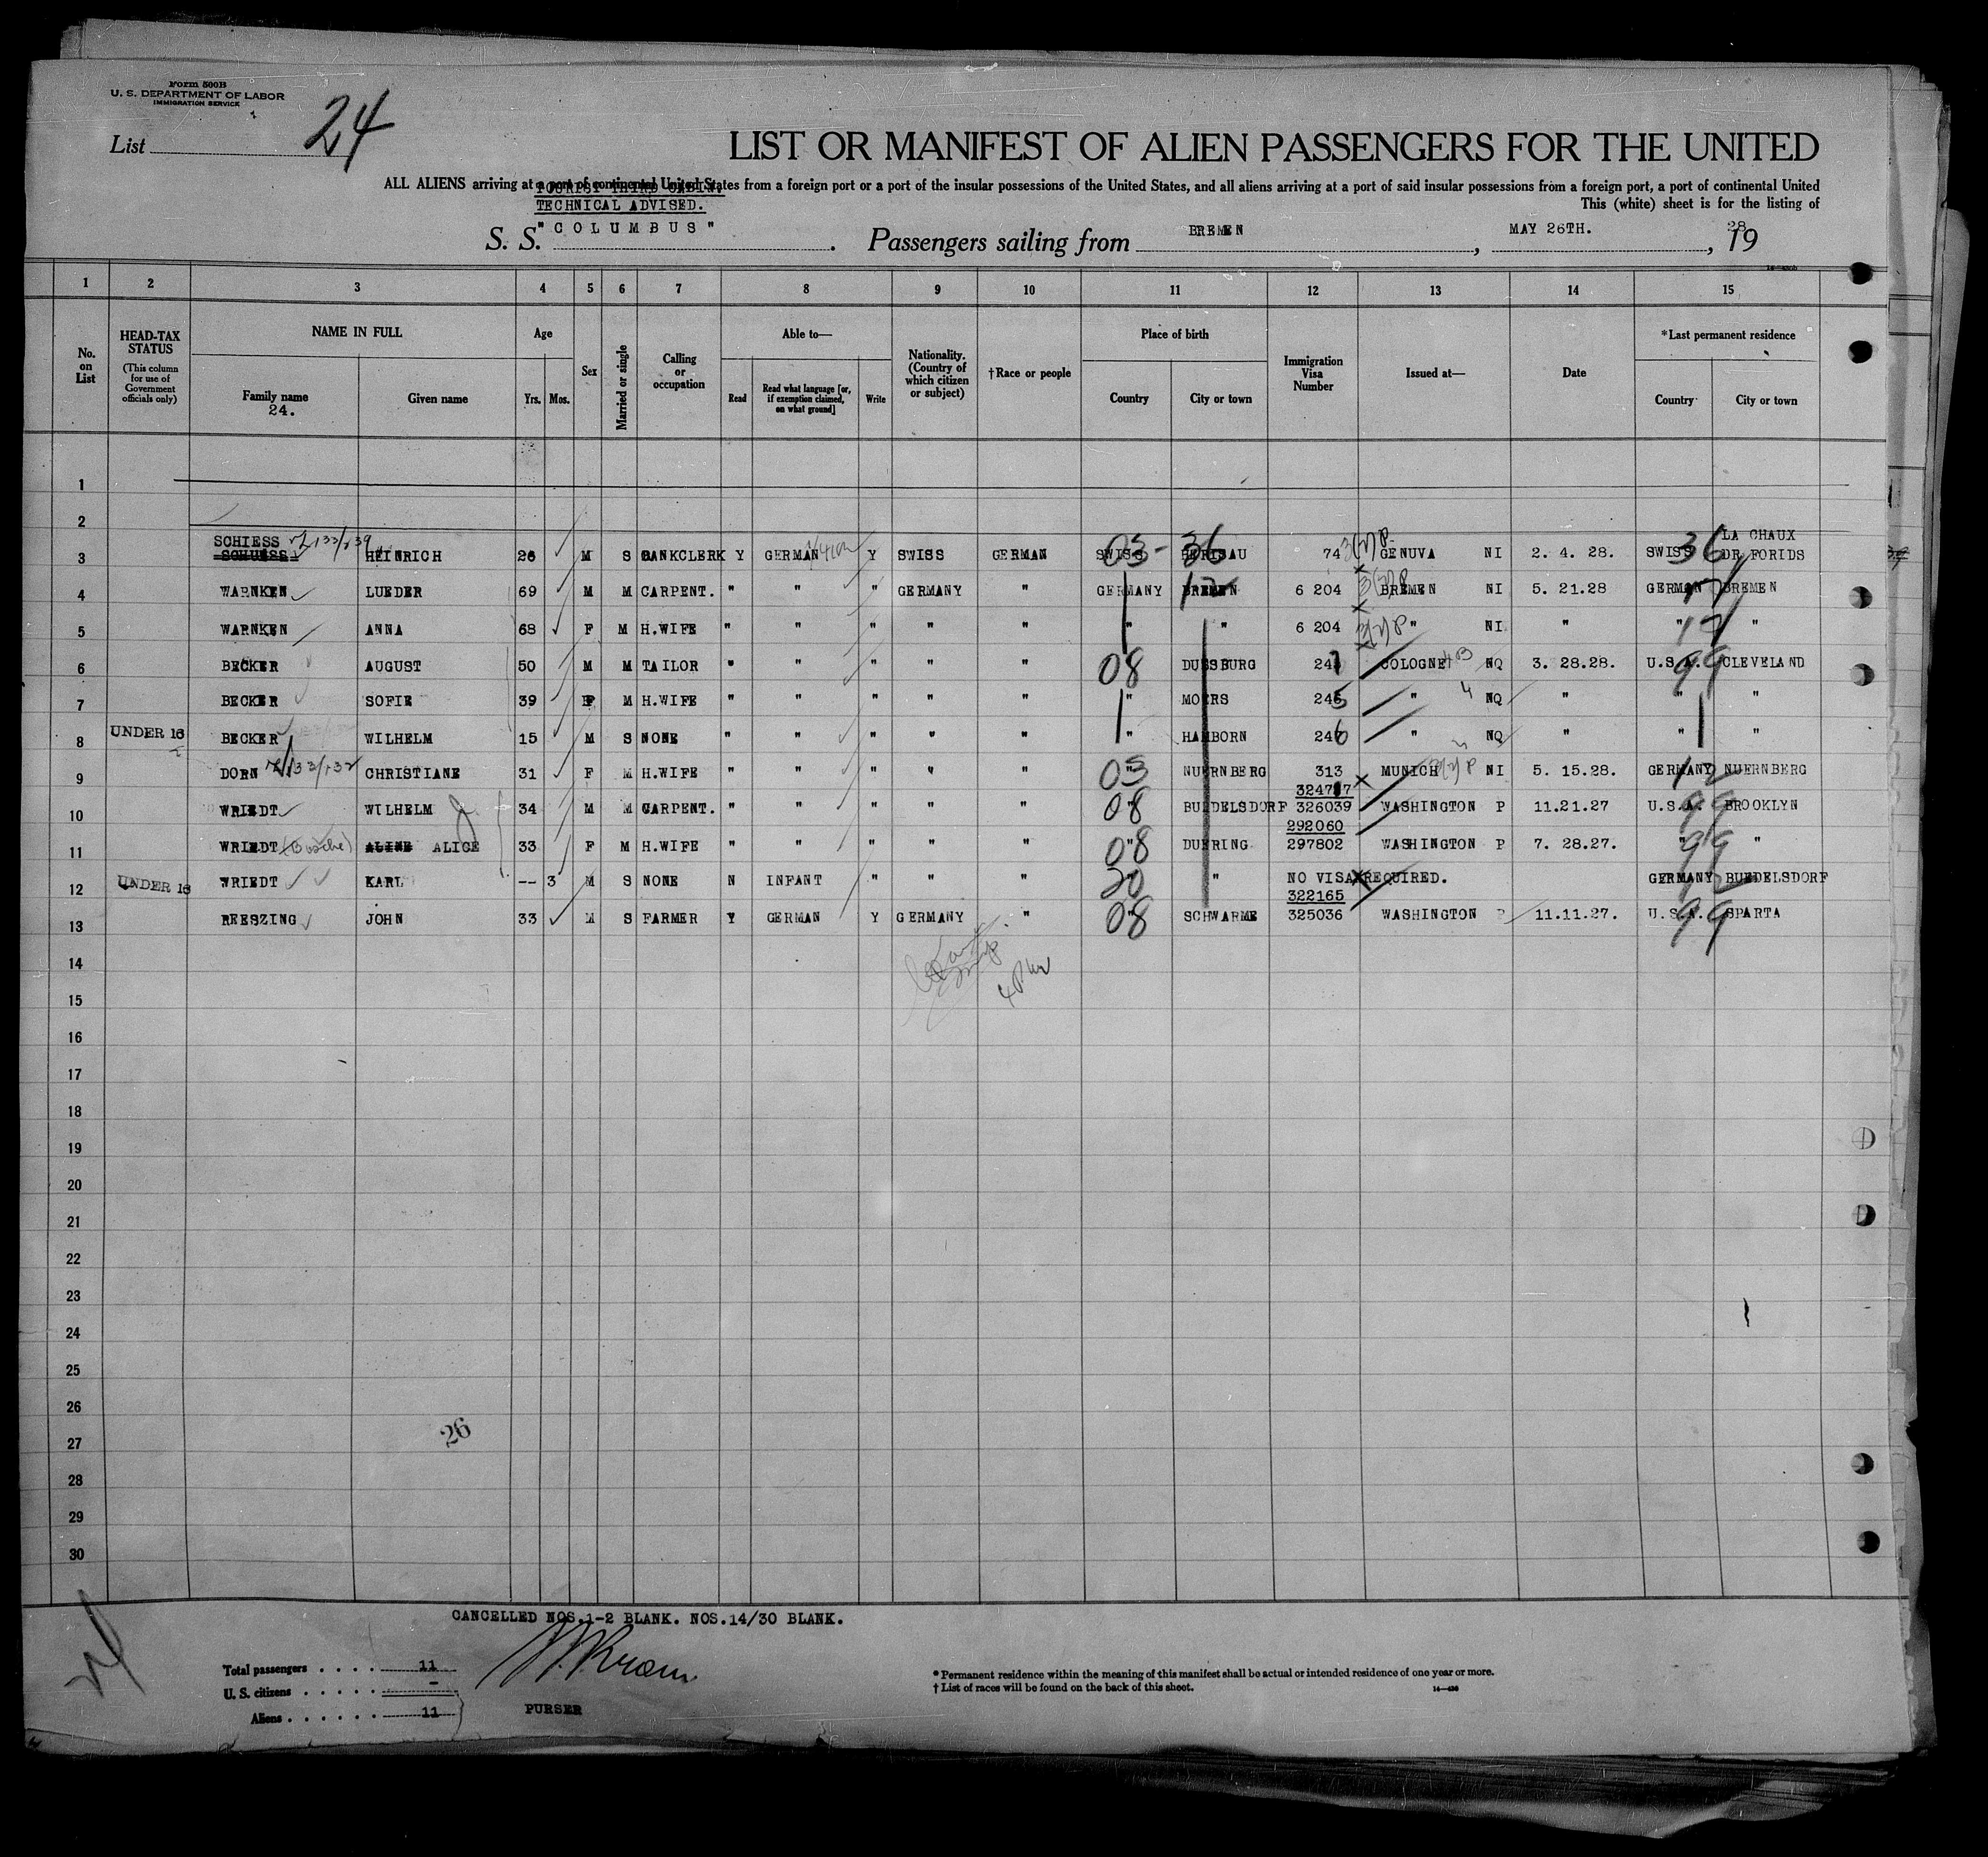 Form 500B
U. S. DEPARTMENT OF LABOR
IMMIGRATION SERVICE
List 24
LIST OR MANIFEST OF ALIEN PASSENGERS FOR THE UNITED
ALL ALIENS arriving at a port of continental United States from a foreign port or a port of the insular possessions of the United States, and all aliens arriving at a port of said insular possessions from a foreign port, a port of continental United
TOURIST THIRD CABIN.
TECHNICAL ADVISED.
This (white) sheet is for the listing of
S. S. "COLUMBUS". Passengers sailing from BREMEN, MAY 26TH., 1928
1 2 3 4 5 6 7 8 9 10 11 12 13 14 15
No. on List
HEAD-TAX STATUS
(This column for use of Government officials only)
NAME IN FULL
Family name
24.
Given name
Age
Yrs. Mos.
Sex
Married or single
Calling or occupation
Able to—
Read
Read what language [or, if exemption claimed, on what ground]
Write
Nationality. (Country of which citizen or subject)
†Race or people
Place of birth
Country City or town
Immigration Visa Number
Issued at—
Date
*Last permanent residence
Country City or town
1
2
SCHIESS 133/139 LA CHAUX
3 HEINRICH 26 M S BANKCLERK Y GERMAN Y SWISS GERMAN SWISS 03-36 HERISAU 74 GENUVA NI 2. 4. 28. SWISS 36 DE FORIDS
4 WARNKEN LUEDER 69 M M CARPENT. " " " GERMANY " GERMANY BREMEN 6 204 BREMEN NI 5. 21.28 GERMAN BREMEN
5 WARNKEN ANNA 68 F M H.WIFE " " " " " " " 6 204 " NI " 17 "
6 BECKER AUGUST 50 M M TAILOR " " " " " 08 DUISBURG 247 COLOGNE NQ 3. 28.28. U.S.A. 99 CLEVELAND
7 BECKER SOFIE 39 F M H.WIFE " " " " " " MOERS 245 " 4 NQ " " "
8 UNDER 16 BECKER WILHELM 15 M S NONE " " " " " " HAMBORN 246 " NQ " " "
9 DORN 133/132 CHRISTIANE 31 F M H.WIFE " " " " " 03 NUERNBERG 313 MUNICH NI 5. 15.28. GERMANY 12 NUERNBERG
324787
10 WRIEDT WILHELM 34 M M CARPENT. " " " " " 08 BUEDELSDORF 326039 WASHINGTON P 11.21.27 U.S.A. 99 BROOKLYN
292060
11 WRIEDT ALINE ALICE 33 F M H.WIFE " " " " " 08 DUERING 297802 WASHINGTON P 7. 28.27. " 99 "
12 UNDER 16 WRIEDT KARL -- 3 M S NONE N INFANT " " " 20 " NO VISA REQUIRED. GERMANY BUEDELSDORF
322165
13 REESZING JOHN 33 M S FARMER Y GERMAN Y GERMANY " 08 SCHWARME 325036 WASHINGTON P 11.11.27. U.S.A. 99 SPARTA
14
15
16
17
18
19
20
21
22
23
24
25
26
27
28
29
30
26
CANCELLED NOS.1-2 BLANK. NOS.14/30 BLANK.
24
Total passengers . . . . 11
U. S. citizens . . . . . -
Aliens . . . . . . 11
PURSER
*Permanent residence within the meaning of this manifest shall be actual or intended residence of one year or more.
†List of races will be found on the back of this sheet.